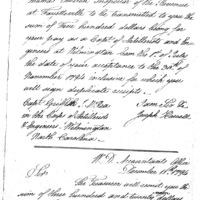 Inspector of the Revenue
at Fayetteville to be transmitted to you the
sum of Four hundred dollars being for
your pay as a Captn. of Artillerists and En-
gineers at Wilmington from the 1st
the date of your acceptance to the 30th of
November 1794 inclusive for which you
will sign duplicate receipts
Captn. Griffith J. McRee
in the Corps of Artillerists
& Engineers, Wilmington
North Carolina
I am Sir &c
Joseph Howell
W. D. Accountants Office
December 11th 1794
Sir
The Treasurer will remit you the
sum of three hundred and twenty dollars